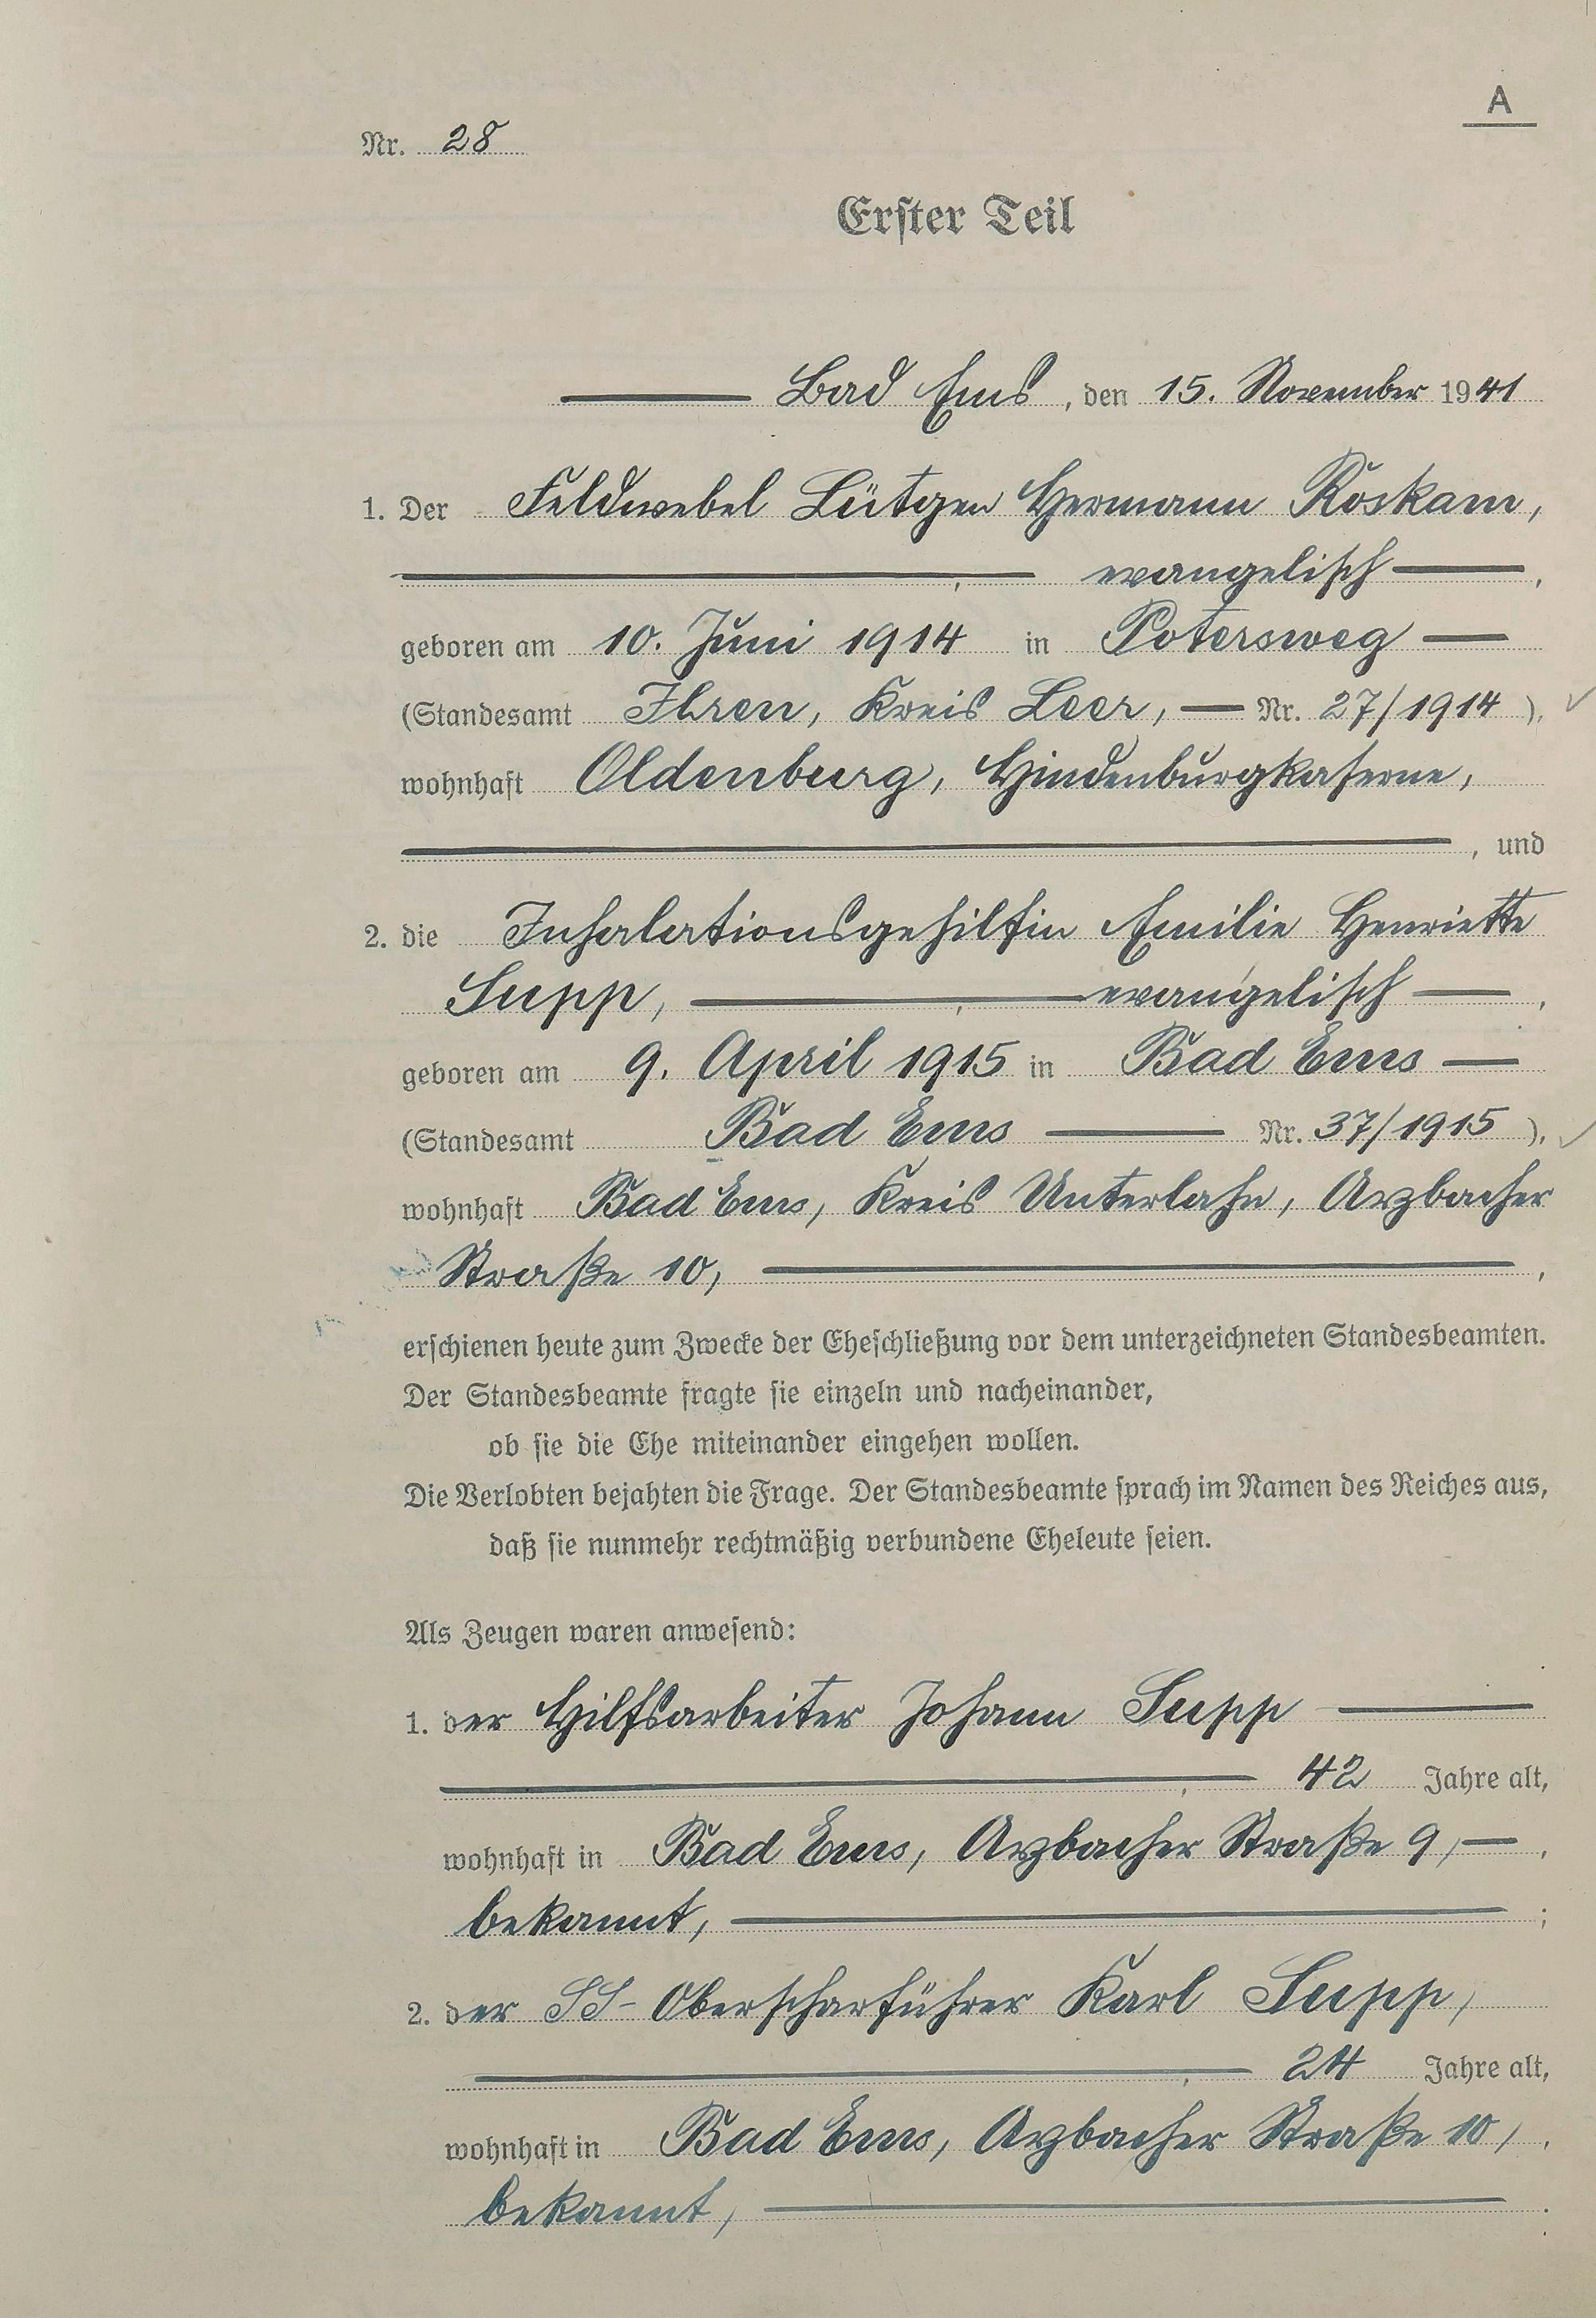 A
Nr. 28
Erster Teil
Bad Ems, den 15. November 1941
1. Der Feldwebel Lütgen Hermann Roskam,
evangelisch,
geboren am 10. Juni 1914 in Potersweg
(Standesamt Ihren, Kreis Leer, Nr. 27/1914),
wohnhaft Oldenburg, Hindenburgkaserne,
, und
2. die Inhalationsgehilfin Emilie Henriette
Supp, evangelisch,
geboren am 9. April 1915 in Bad Ems
(Standesamt Bad Ems Nr. 37/1915),
wohnhaft Bad Ems, Kreis Unterlahn, Arzbacher
Straße 10,
erschienen heute zum Zwecke der Eheschließung vor dem unterzeichneten Standesbeamten.
Der Standesbeamte fragte sie einzeln und nacheinander,
ob sie die Ehe miteinander eingehen wollen.
Die Verlobten bejahten die Frage. Der Standesbeamte sprach im Namen des Reiches aus,
daß sie nunmehr rechtmäßig verbundene Eheleute seien.
Als Zeugen waren anwesend:
1. der Hilfsarbeiter Johann Supp
42 Jahre alt,
wohnhaft in Bad Ems, Arzbacher Straße 9,
bekannt,
2. der SS-Oberscharführer Karl Supp,
24 Jahre alt,
wohnhaft in Bad Ems, Arzbacher Straße 10,
bekannt,